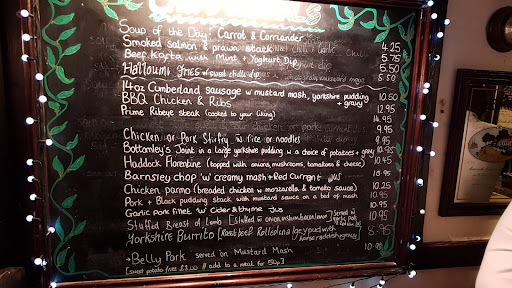 SPECIALS
Soup of the Day: Carrot & Corriander 4.25
Smoked salmon & prawn stack 5.75
Beef Kofta with Mint + Yoghurt Dip 5.50
Halloumi fries w sweet chilli dip 5.50
14oz Cumberland sausage w mustard mash, yorkshire pudding + gravy 10.50
BBQ Chicken & Ribs 12.95
Prime Ribeye steak (cooked to your liking) 14.95
Chicken or Pork Stirfry w rice or noodles 8.95
Bottomley's Joint in a large yorkshire pudding w a choice of potatoes + gravy 10.95
Haddock Florentine (topped with onions, mushrooms, tomatoes & cheese) 10.45
Barnsley chop 'w' creamy mash + Red Currant Jus 16.95
Chicken parmo (breaded chicken w mozzarella & tomato sauce) 10.25
Pork + Black pudding stack with mustard sauce on a bed of mash 10.95
Garlic pork fillet 'w' Cider & thyme Jus 10.95
Stuffed Breast of Lamb Served w 10.95
Yorkshire Burrito 8.95
→ Belly Pork served on Mustard Mash 10.95
[sweet potato fries £3.00 // add to a meal for 50p]